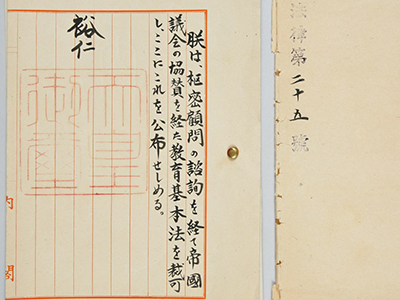 法律第二十五號
朕は、枢密顧問の諮詢を経て、帝國
議会の協賛を経た教育基本法を裁可
し、ここにこれを公布せしめる。
裕仁
天皇
御璽
内閣